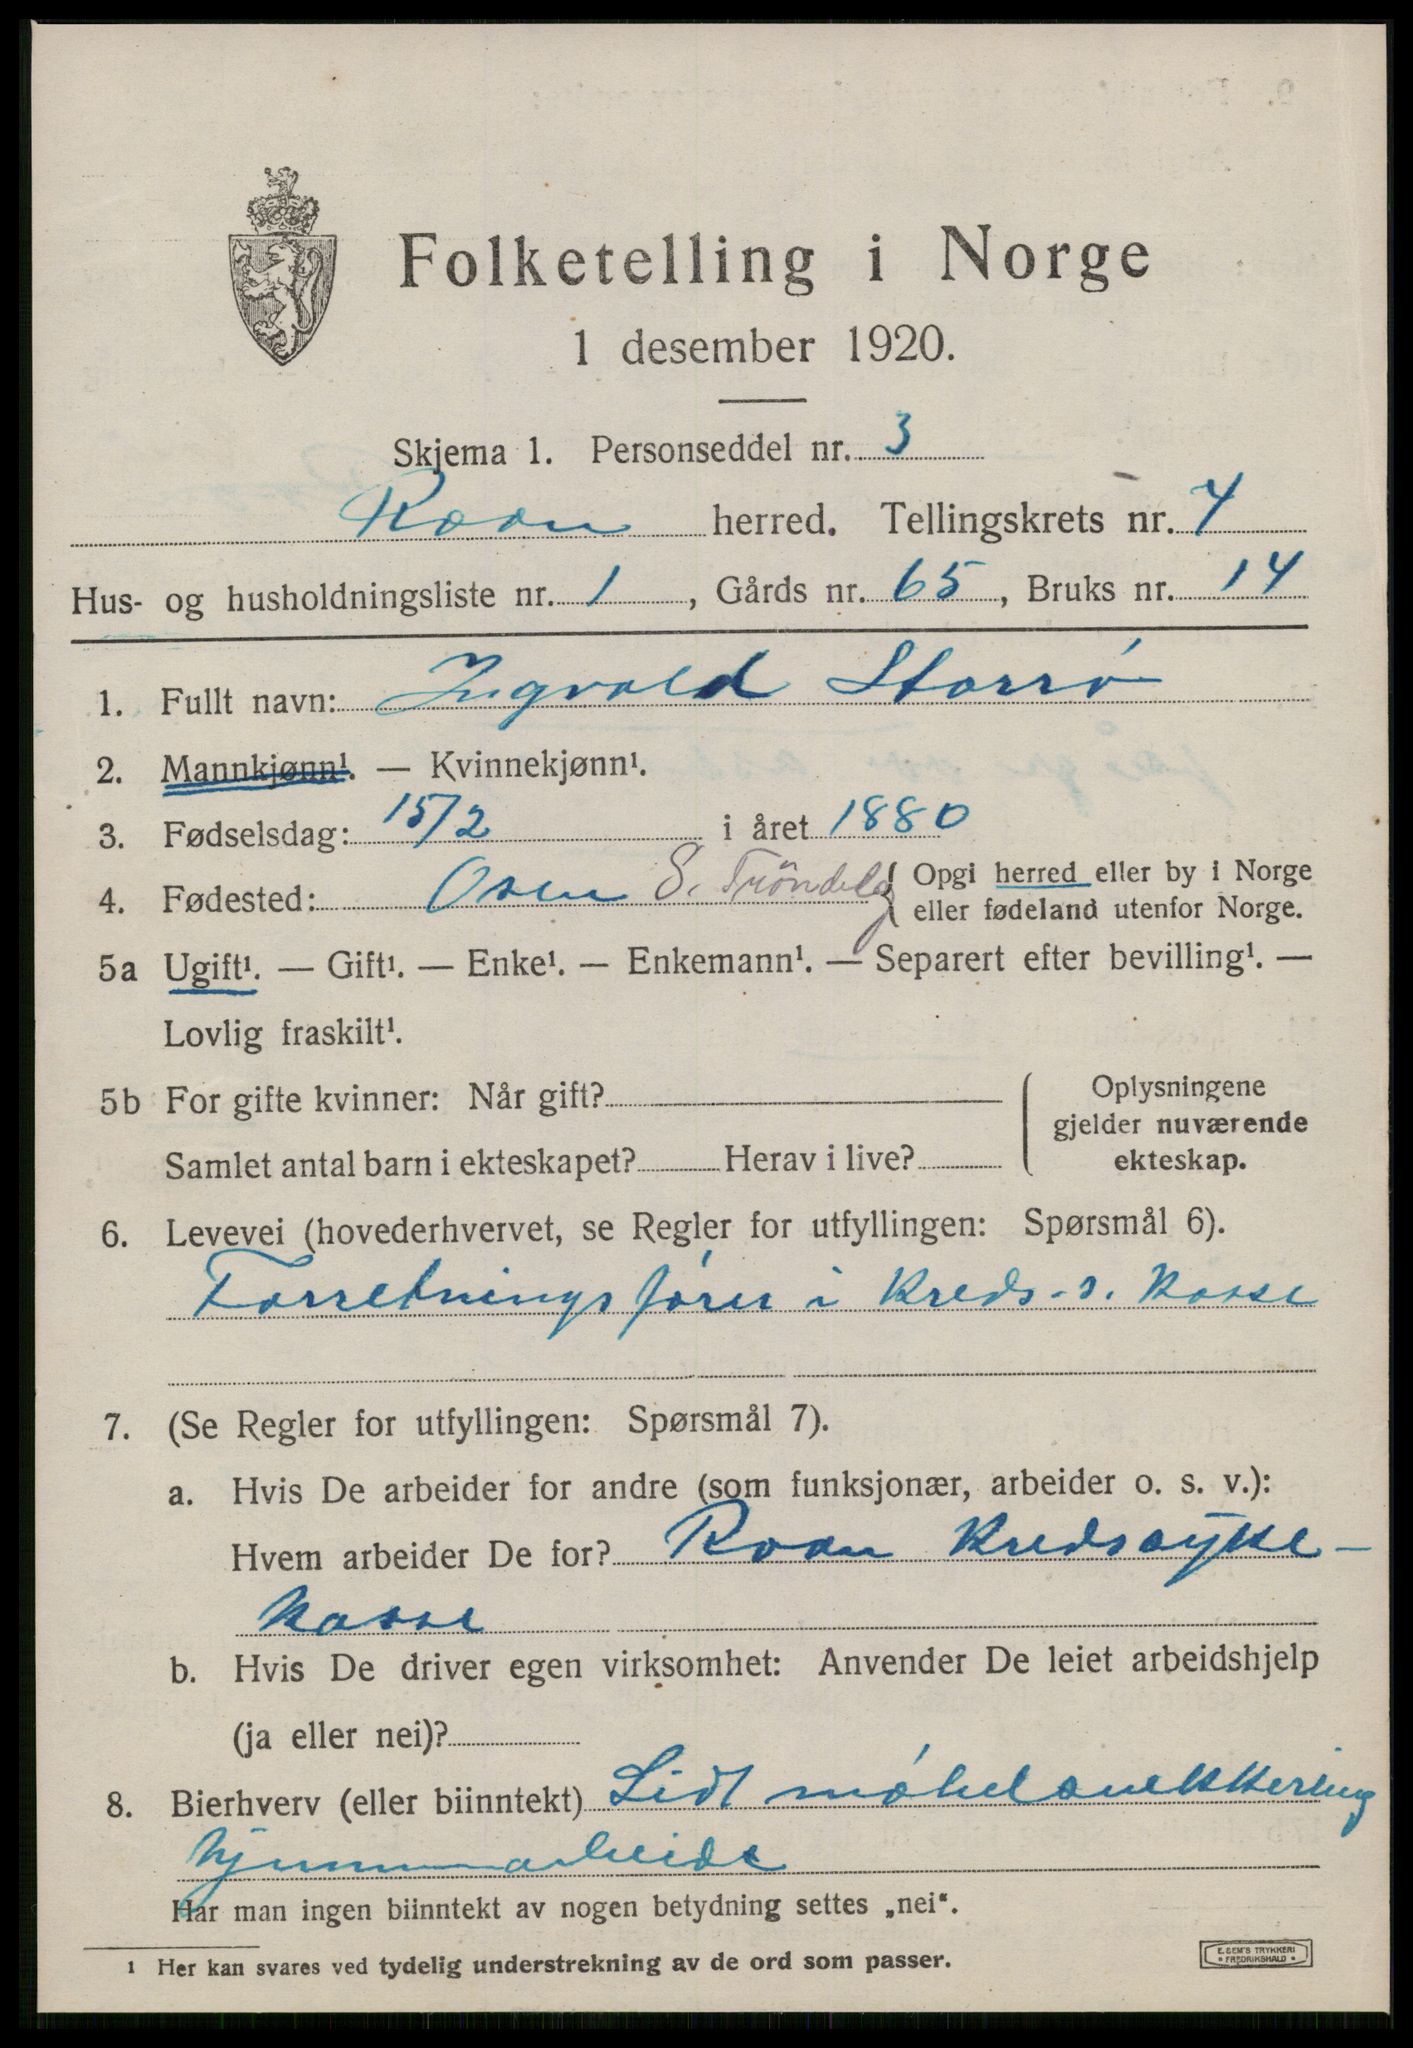 Folketelling i Norge
1 desember 1920.
Skjema 1. Personseddel nr. 3
Roan herred. Tellingskrets nr. 7
Hus- og husholdningsliste nr. 1, Gårds nr. 65, Bruks nr. 14
1. Fullt navn: Ingvald Storrø
2. Mannkjønn¹. — Kvinnekjønn¹.
3. Fødselsdag: 15/2 i året 1880
4. Fødested: Osen S. Tröndelag { Opgi herred eller by i Norge
eller fødeland utenfor Norge.
5a Ugift¹. — Gift¹. — Enke¹. — Enkemann¹. — Separert efter bevilling¹. —
Lovlig fraskilt¹.
5b For gifte kvinner: Når gift?
Samlet antal barn i ekteskapet? Herav i live?
Oplysningene
gjelder nuværende
ekteskap.
6. Levevei (hovederhvervet, se Regler for utfyllingen: Spørsmål 6).
Forretningsfører i Kreds-s. kasse
7. (Se Regler for utfyllingen: Spørsmål 7).
a. Hvis De arbeider for andre (som funksjonær, arbeider o. s. v.):
Hvem arbeider De for? Roan Kredssyke-
kasse
b. Hvis De driver egen virksomhet: Anvender De leiet arbeidshjelp
(ja eller nei)?
8. Bierhverv (eller biinntekt) Lidt møbelsnekkering
hjemmearbeide
Har man ingen biinntekt av nogen betydning settes „nei“.
¹ Her kan svares ved tydelig understrekning av de ord som passer.
E. SEM'S TRYKKERI
* FREDRIKSHALD *